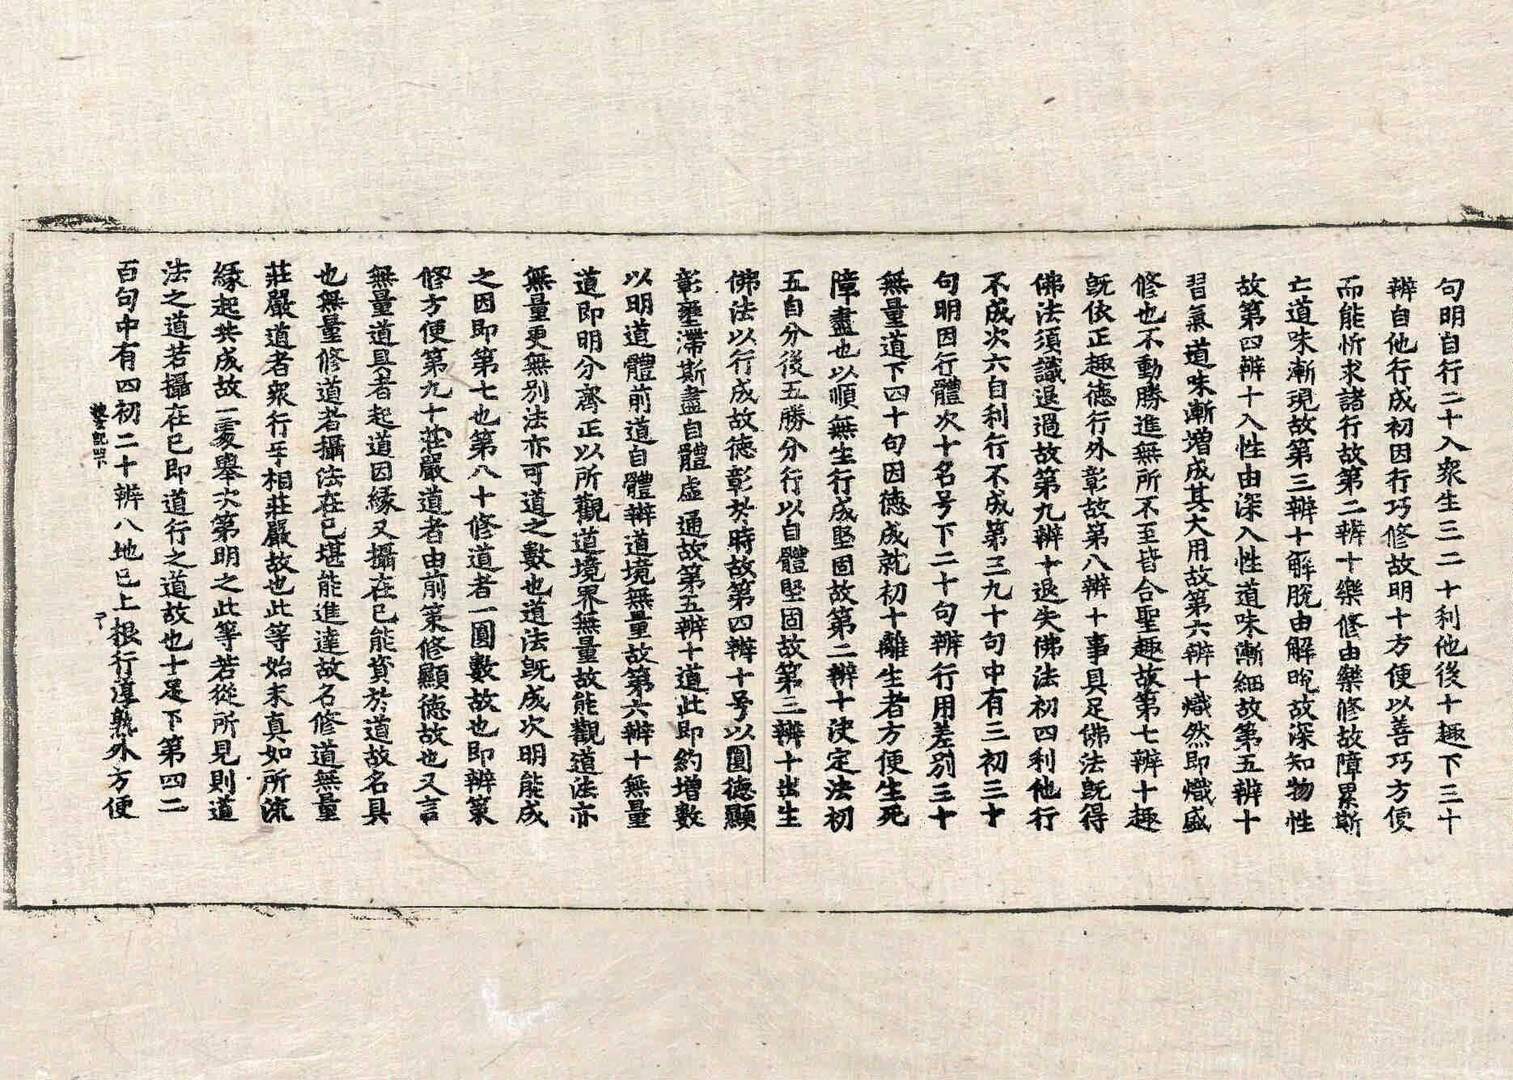 句明自行二十入衆生三二十利他後十趣下三十
辨自他行成初因行巧修故明十方便以善巧方便
而能忻求諸行故第二辨十樂修由樂修故障累斯
亡道味漸現故第三辨十解脫由解脫故深知物性
故第四辨十入性由深入性道味漸細故第五辨十
習氣道味漸增成其大用故第六辨十熾然即熾盛
修也不動勝進無所不至皆合聖趣故第七辨十趣
既依正趣德行外彰故第八辨十事具足佛法既得
佛法須識退過故第九辨十退失佛法初四利他行
不成次六自利行不成第三九十句中有三初三十
句明因行體次十名号下二十句辨行用差別三十
無量道下四十句因德成就初十離生者方便生死
障盡也以順無生行成堅固故第二辨十決定法初
五自分後五勝分行以自體堅固故第三辨十出生
佛法以行成故德彰於時故第四辨十号以圓德顯
彰壅滯斯盡自體虛通故第五辨十道此即約增數
以明道體前道自體辨道境無量故第六辨十無量
道即明分齊正以所觀道境界無量故能觀道法亦
無量更無別法亦可道之數也道法既成次明能成
之因即第七也第八十修道者一圓數故也即辨策
修方便第九十莊嚴道者由前策修顯德故也又言
無量道具者起道因緣又攝在已能資於道故名具
也無量修道者攝法在已堪能進達故名修道無量
莊嚴道者衆行乎相莊嚴故也此等始末真如所流
緣起共成故一處舉次第明之此等若從所見則道
法之道若攝在已即道行之道故也十足下第四二
百句中有四初二十辨八地已上根行淳熟外方便